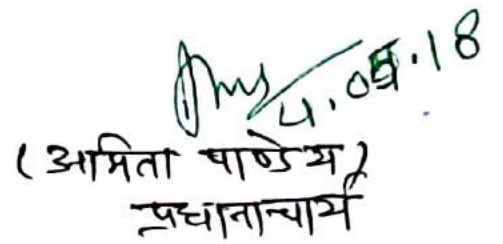 4.05.18
(अमिता पाण्डेय)
प्रधानाचार्य